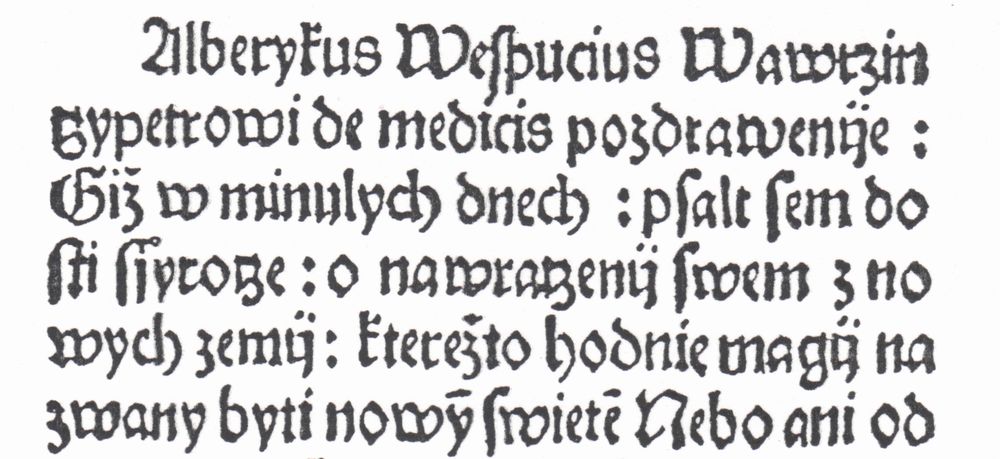 Alberykus Wespucius Wawrzin
czypetrowi de medicis pozdrawenije :
Giiž w minulych dnech : psalt sem do
sti ssyrocze : o nawraczenij swem z no
wych zemij : kterežto hodnie magij na
zwany byti nowȳ swietē Nebo ani od